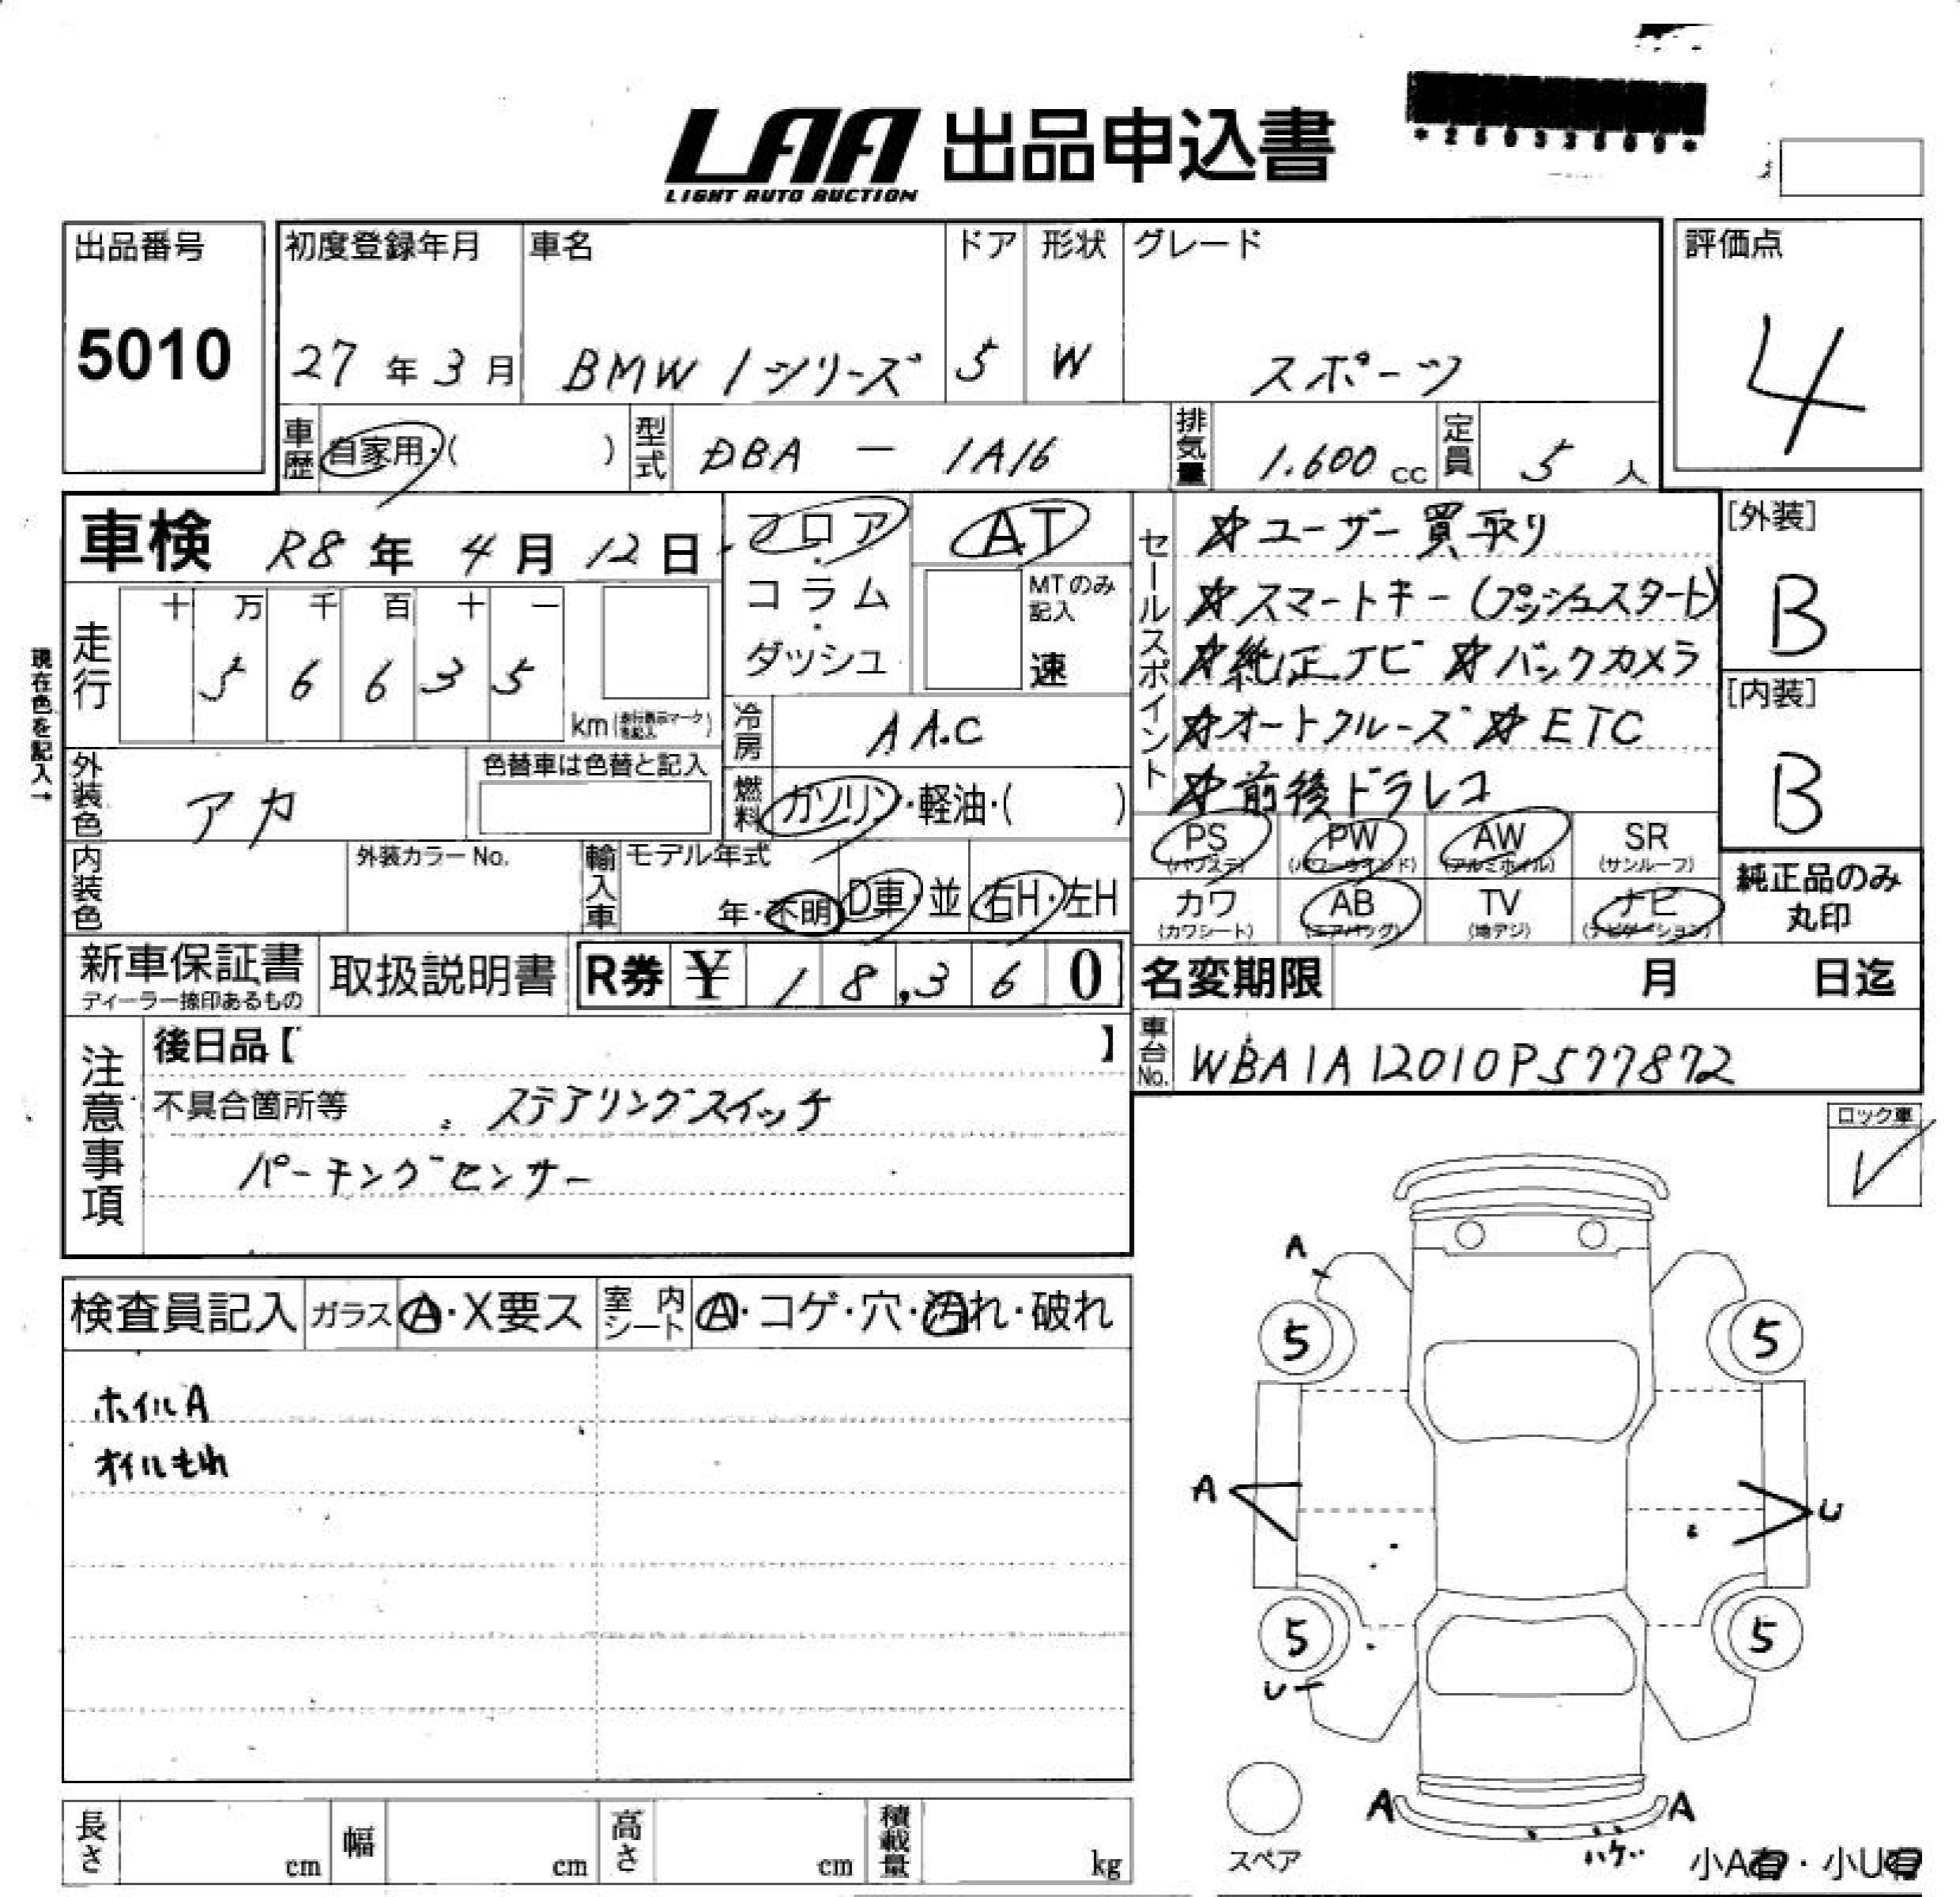 LAA 出品申込書
LIGHT AUTO AUCTION
出品番号
5010
初度登録年月
27年3月
車名
BMW 1シリーズ
ドア
5
形状
W
グレード
スポーツ
評価点
4
車歴
自家用・( )
型式
DBA — 1A16
排気量
1.600 cc
定員
5 人
車検 R8年 4月 12日
フロア・コラム・ダッシュ
AT
MTのみ記入
速
走行
十 万 千 百 十 一
5 6 6 3 5
km
現在色を記入→
冷房
AA.C
外装色
アカ
色替車は色替と記入
燃料
ガソリン・軽油・( )
内装色
外装カラーNo.
輸入車
モデル年式
年・不明
D車・並
右H・左H
セールスポイント
☆ユーザー買取り
☆スマートキー(プッシュスタート)
☆純正ナビ ☆バックカメラ
☆オートクルーズ ☆ETC
☆前後ドラレコ
[外装]
B
[内装]
B
PS (パワステ)
PW (パワーウインド)
AW (アルミホイル)
SR (サンルーフ)
カワ (カワシート)
AB (エアバッグ)
TV (地デジ)
ナビ (ナビゲーション)
純正品のみ
丸印
新車保証書
ディーラー捺印あるもの
取扱説明書
R券 ¥ 18,360
名変期限 月 日迄
車台No.
WBA1A12010P577872
注意事項
後日品【 】
不具合箇所等 ステアリングスイッチ
パーキングセンサー
ロック車
✓
検査員記入
ガラス A・X要ス
室内シート A・コゲ・穴・汚れ・破れ
ホイルA
オイルもれ
A
5 5
A U
5 5
U
A A
ハゲ
スペア
小A有・小U有
長さ cm
幅 cm
高さ cm
積載量 kg